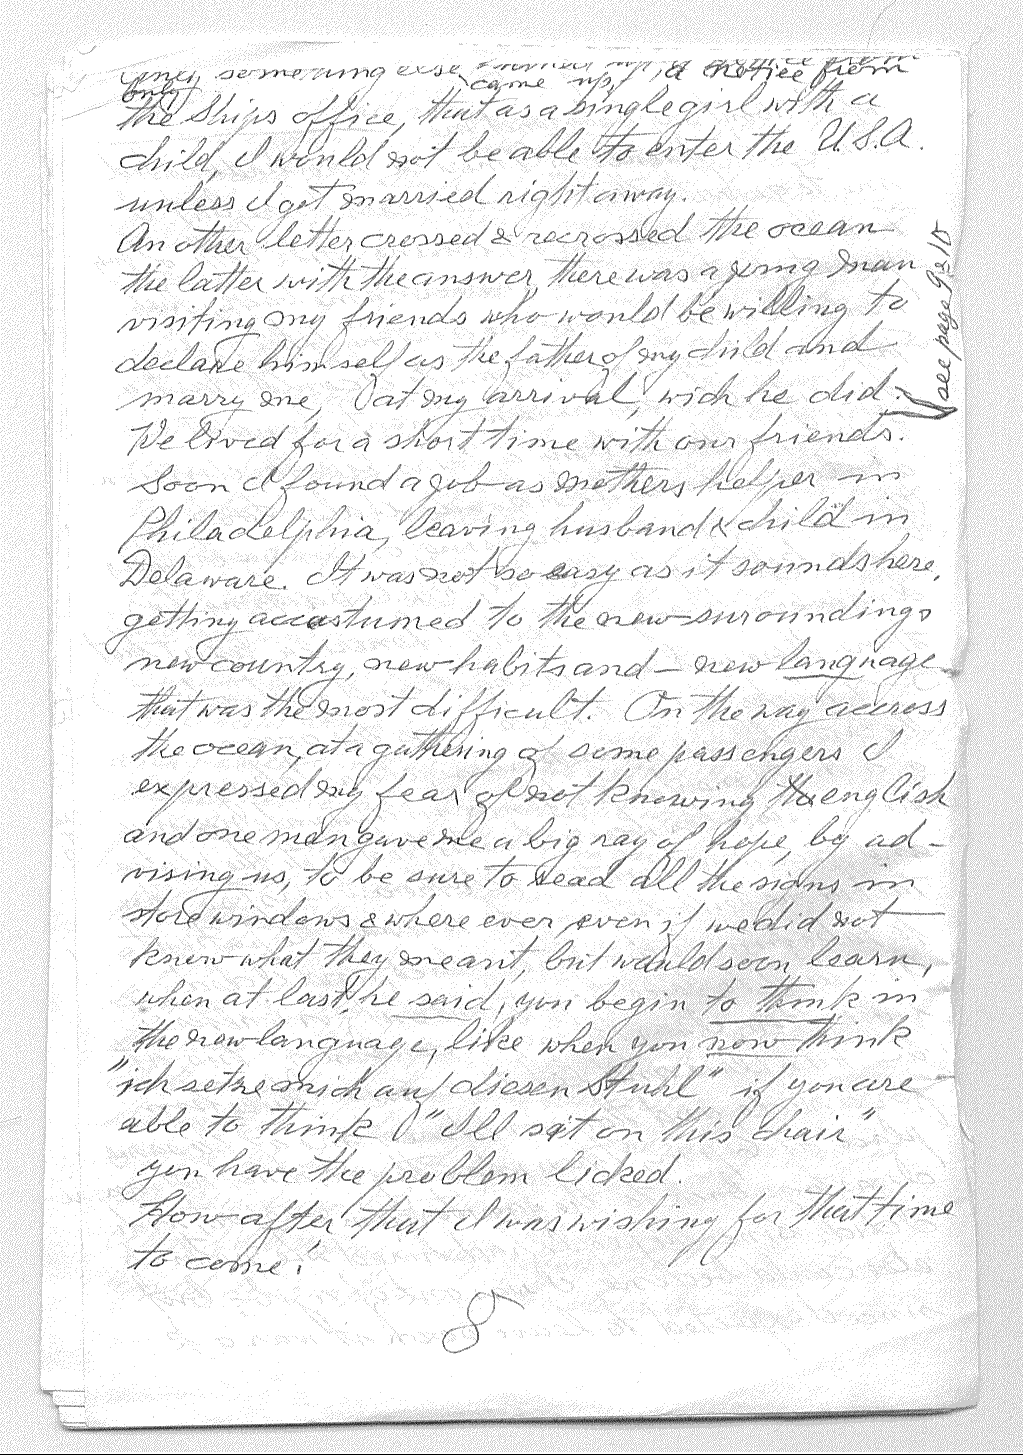 only something else came up, a notice from
the Ships office, that as a single girl with a
child, I would not be able to enter the U.S.A.
unless I get married right away.
An other letter crossed & recrossed the ocean
the latter with the answer, there was a young man
visiting my friends who would be willing to
declare himself as the father of my child and
marry me, at my arrival, wich he did.
see page 9 & 10
We lived for a short time with our friends.
Soon I found a job as mothers helper in
Philadelphia, leaving husband & child in
Delaware. It was not so easy as it sounds here,
getting accustumed to the new suroundings
new country, new habits and – new language
that was the most difficult. On the way accross
the ocean, at a gathering of some passengers I
expressed my fear of not knowing english
and one man gave me a big ray of hope, by ad-
vising us, to be sure to read all the signs in
store windows & where ever, even if we did not
know what they meant, but would soon learn,
when at last, he said, you begin to think in
the new language, like when you now think
"ich setze mich auf diesen Stuhl" if you are
able to think "I'll sit on this chair"
you have the problem licked.
How after that I was wishing for that time
to come!
8